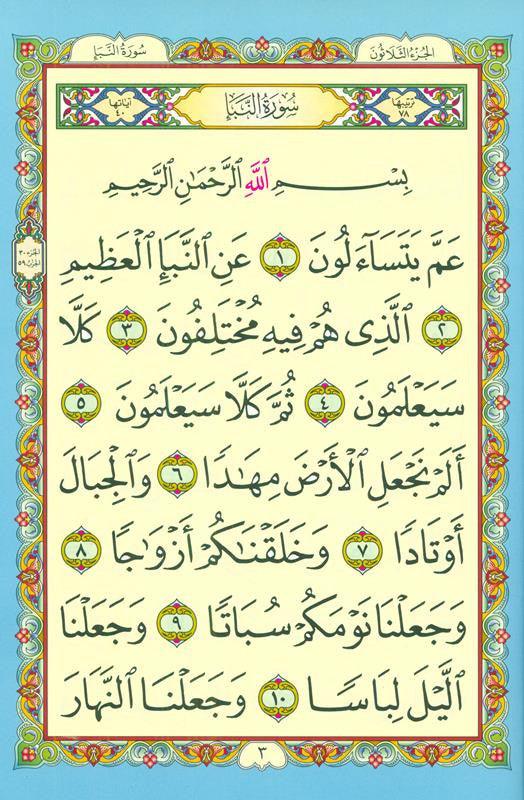 الجزء الثلاثون
سورة النبإ
ترتيبها ٧٨
سُورَةُ النَّبَإِ
آياتها ٤٠
بِسْمِ ٱللَّهِ ٱلرَّحْمَٰنِ ٱلرَّحِيمِ
عَمَّ يَتَسَآءَلُونَ ١ عَنِ ٱلنَّبَإِ ٱلْعَظِيمِ
٢ ٱلَّذِى هُمْ فِيهِ مُخْتَلِفُونَ ٣ كَلَّا
سَيَعْلَمُونَ ٤ ثُمَّ كَلَّا سَيَعْلَمُونَ ٥
أَلَمْ نَجْعَلِ ٱلْأَرْضَ مِهَٰدًا ٦ وَٱلْجِبَالَ
أَوْتَادًا ٧ وَخَلَقْنَٰكُمْ أَزْوَٰجًا ٨
وَجَعَلْنَا نَوْمَكُمْ سُبَاتًا ٩ وَجَعَلْنَا
ٱلَّيْلَ لِبَاسًا ١٠ وَجَعَلْنَا ٱلنَّهَارَ
الجزء ٣٠
الحزب ٥٩
٣